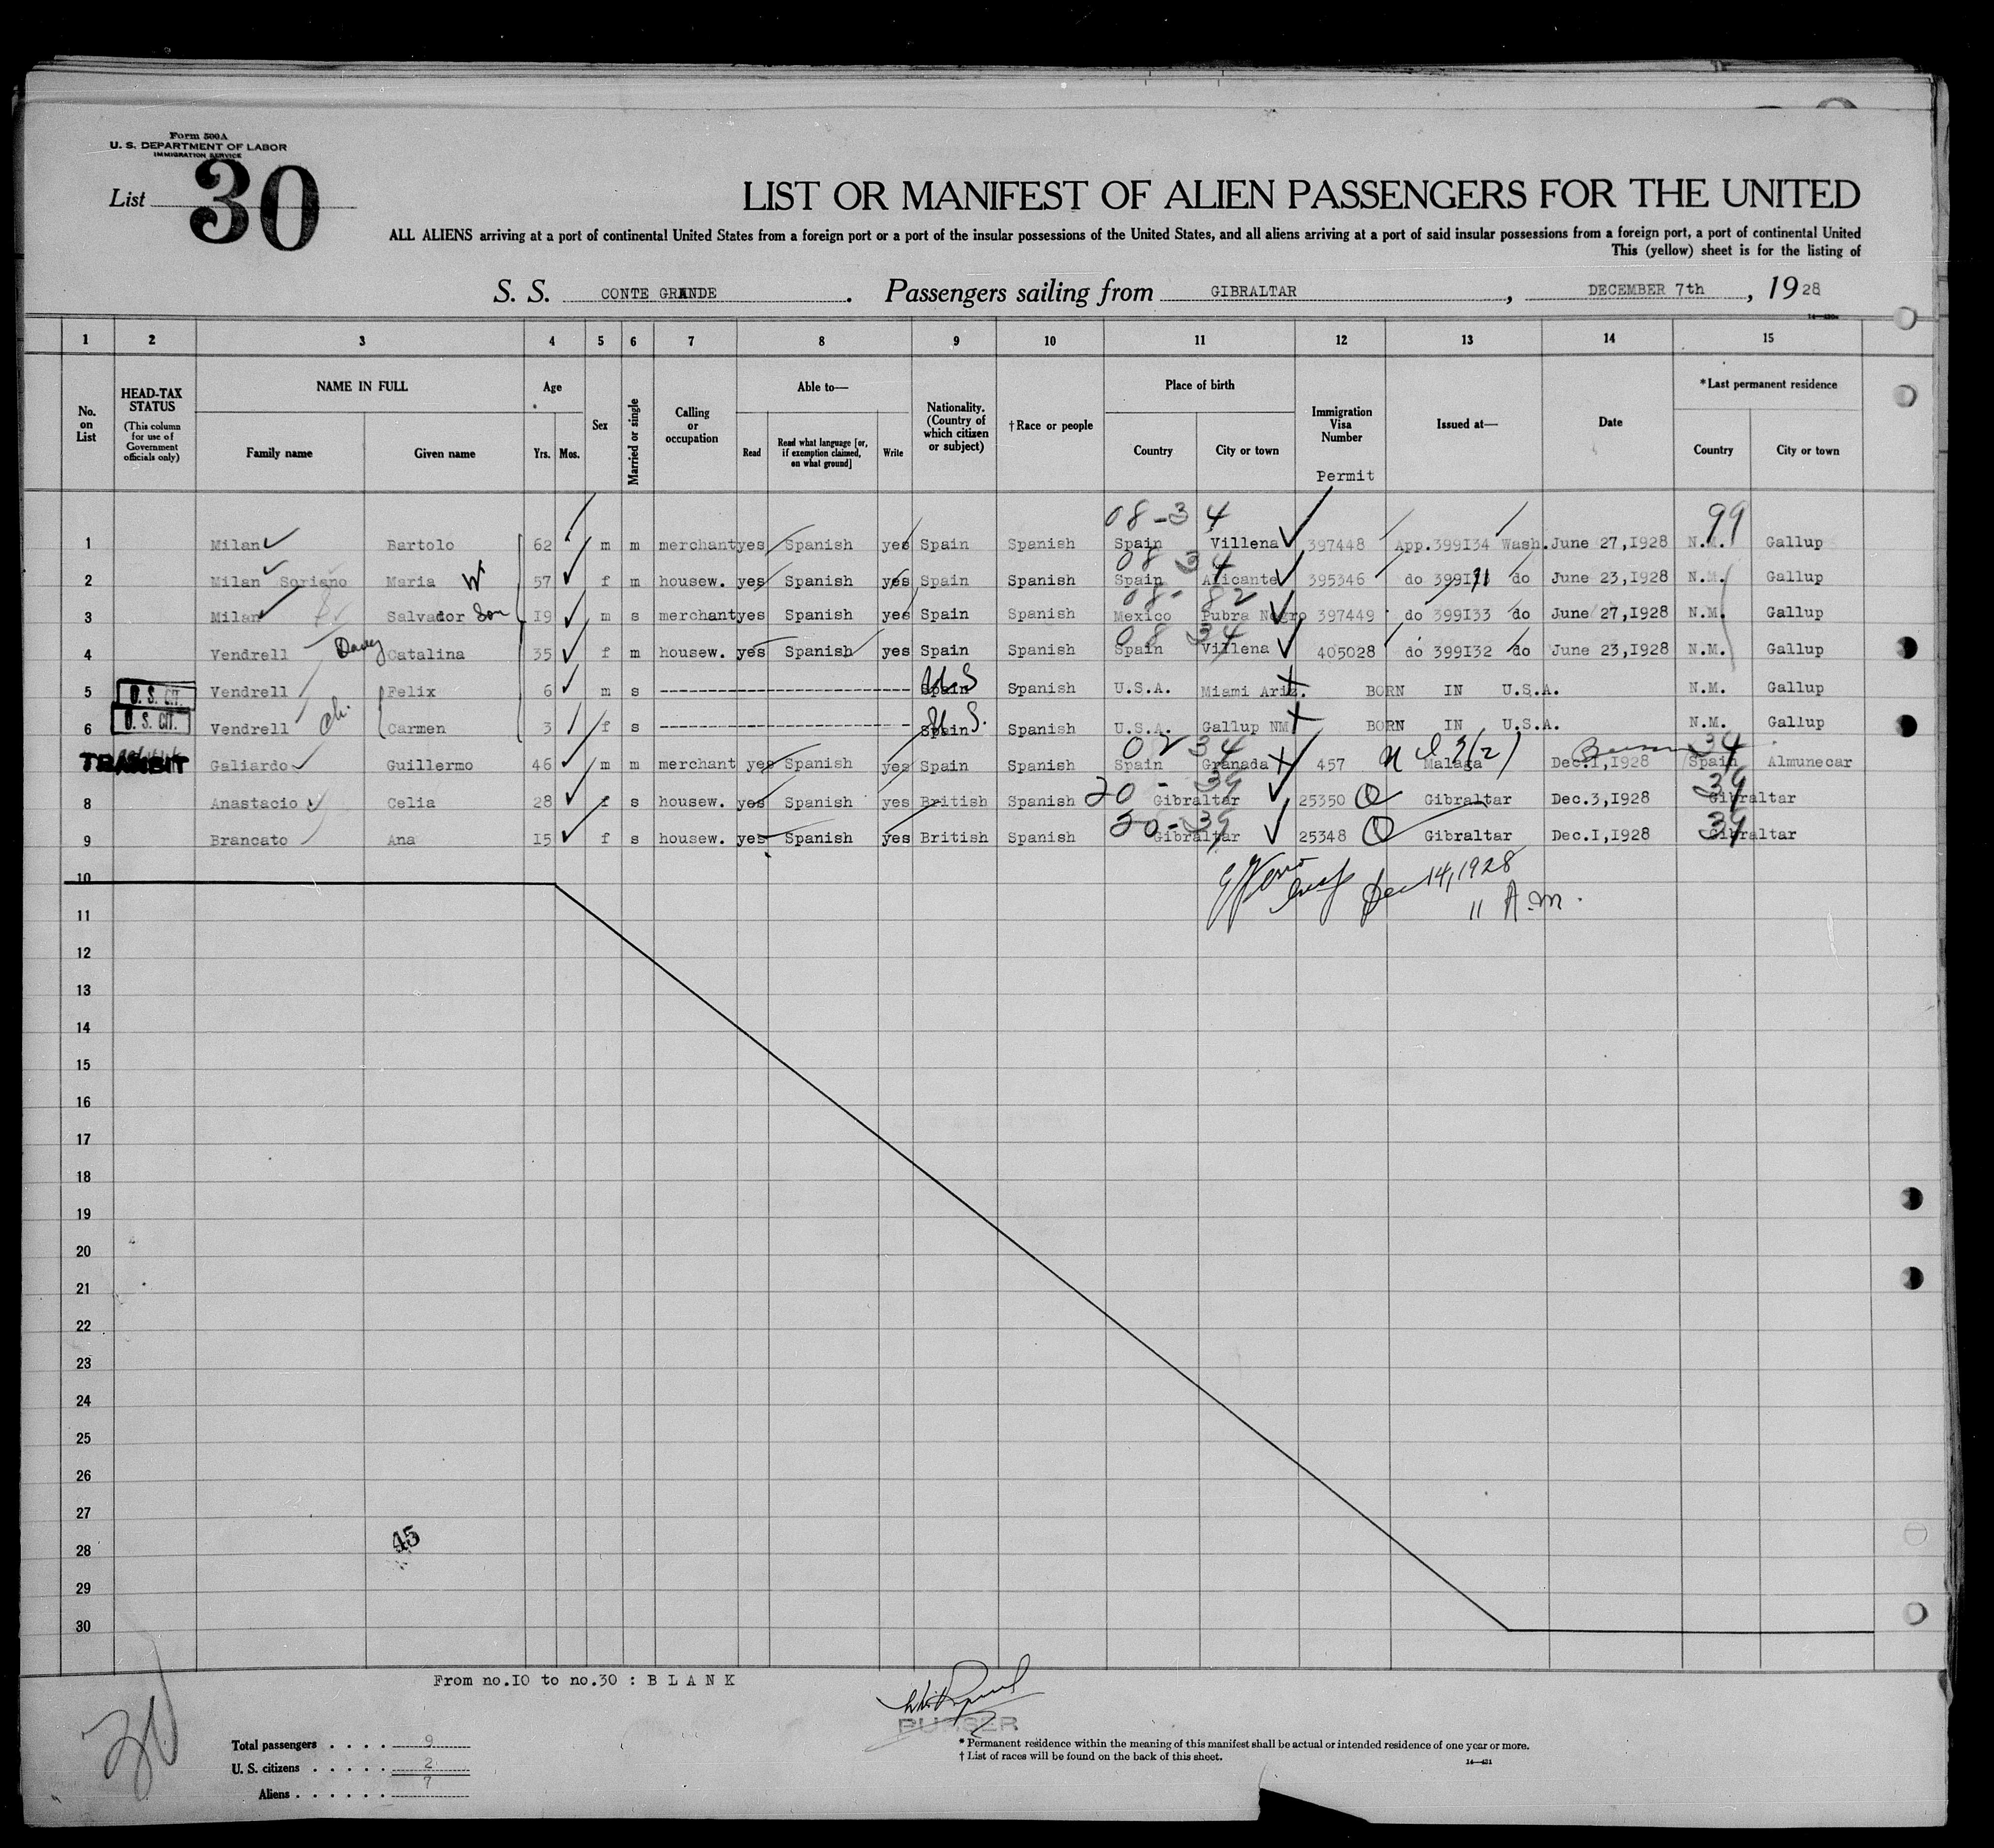 Form 500A
U. S. DEPARTMENT OF LABOR
IMMIGRATION SERVICE
List 30
LIST OR MANIFEST OF ALIEN PASSENGERS FOR THE UNITED
ALL ALIENS arriving at a port of continental United States from a foreign port or a port of the insular possessions of the United States, and all aliens arriving at a port of said insular possessions from a foreign port, a port of continental United
This (yellow) sheet is for the listing of
S. S. CONTE GRANDE. Passengers sailing from GIBRALTAR, DECEMBER 7th, 1928
1 2 3 4 5 6 7 8 9 10 11 12 13 14 15
No. on List
HEAD-TAX STATUS (This column for use of Government officials only)
NAME IN FULL Family name Given name
Age Yrs. Mos.
Sex
Married or single
Calling or occupation
Able to— Read Read what language [or, if exemption claimed, on what ground] Write
Nationality. (Country of which citizen or subject)
†Race or people
Place of birth Country City or town
Immigration Visa Number Permit
Issued at—
Date
*Last permanent residence Country City or town
08-34 99
1 Milan Bartolo 62 m m merchant yes Spanish yes Spain Spanish Spain Villena 397448 App.399I34 Wash. June 27,I928 N.M. Gallup
08 34
2 Milan Soriano Maria W 57 f m housew. yes Spanish yes Spain Spanish Spain Alicante 395346 do do June 23,I928 N.M. Gallup
08- 82
3 Milan Salvador Son I9 m s merchant yes Spanish yes Spain Spanish Mexico Pubra Negro 397449 do 399I33 do June 27,I928 N.M. Gallup
08 34
4 Vendrell Catalina 35 f m housew. yes Spanish yes Spain Spanish Spain Villena 405028 do 399I32 do June 23,I928 N.M. Gallup
5 U. S. CIT. Vendrell Felix 6 m s Spain U.S Spanish U.S.A. Miami Ariz. BORN IN U.S.A. N.M. Gallup
6 U. S. CIT. Vendrell Ch. Carmen 3 f s Spain U.S. Spanish U.S.A. Gallup NM BORN IN U.S.A. N.M. Gallup
02 34 34
TRANSIT Galiardo Guillermo 46 m m merchant yes Spanish yes Spain Spanish Spain Granada 457 Malaga Dec.I,I928 Spain Almunecar
20 - 39 39
8 Anastacio Celia 28 f s housew. yes Spanish yes British Spanish Gibraltar 25350 Gibraltar Dec.3,I928 Gibraltar
20-39 39
9 Brancato Ana I5 f s housew. yes Spanish yes British Spanish Gibraltar 25348 Gibraltar Dec.I,I928 Gibraltar
10
Dec 14, 1928
11 A.M.
11
12
13
14
15
16
17
18
19
20
21
22
23
24
25
26
27
45
28
29
30
From no.I0 to no.30 : B L A N K
30
PURSER
Total passengers . . . . 9
U. S. citizens . . . . . 2
Aliens . . . . . . 7
* Permanent residence within the meaning of this manifest shall be actual or intended residence of one year or more.
† List of races will be found on the back of this sheet.
14—431